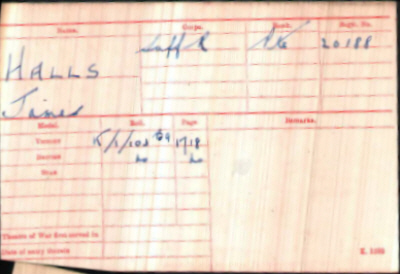 Name. Corps. Rank. Regtl. No.
HALLS Suff R Pte 20188
James
Medal. Roll. Page Remarks.
Victory K/1/102 B9 1718
British do do
Star
Theatre of War first served in
Date of entry therein K. 1380